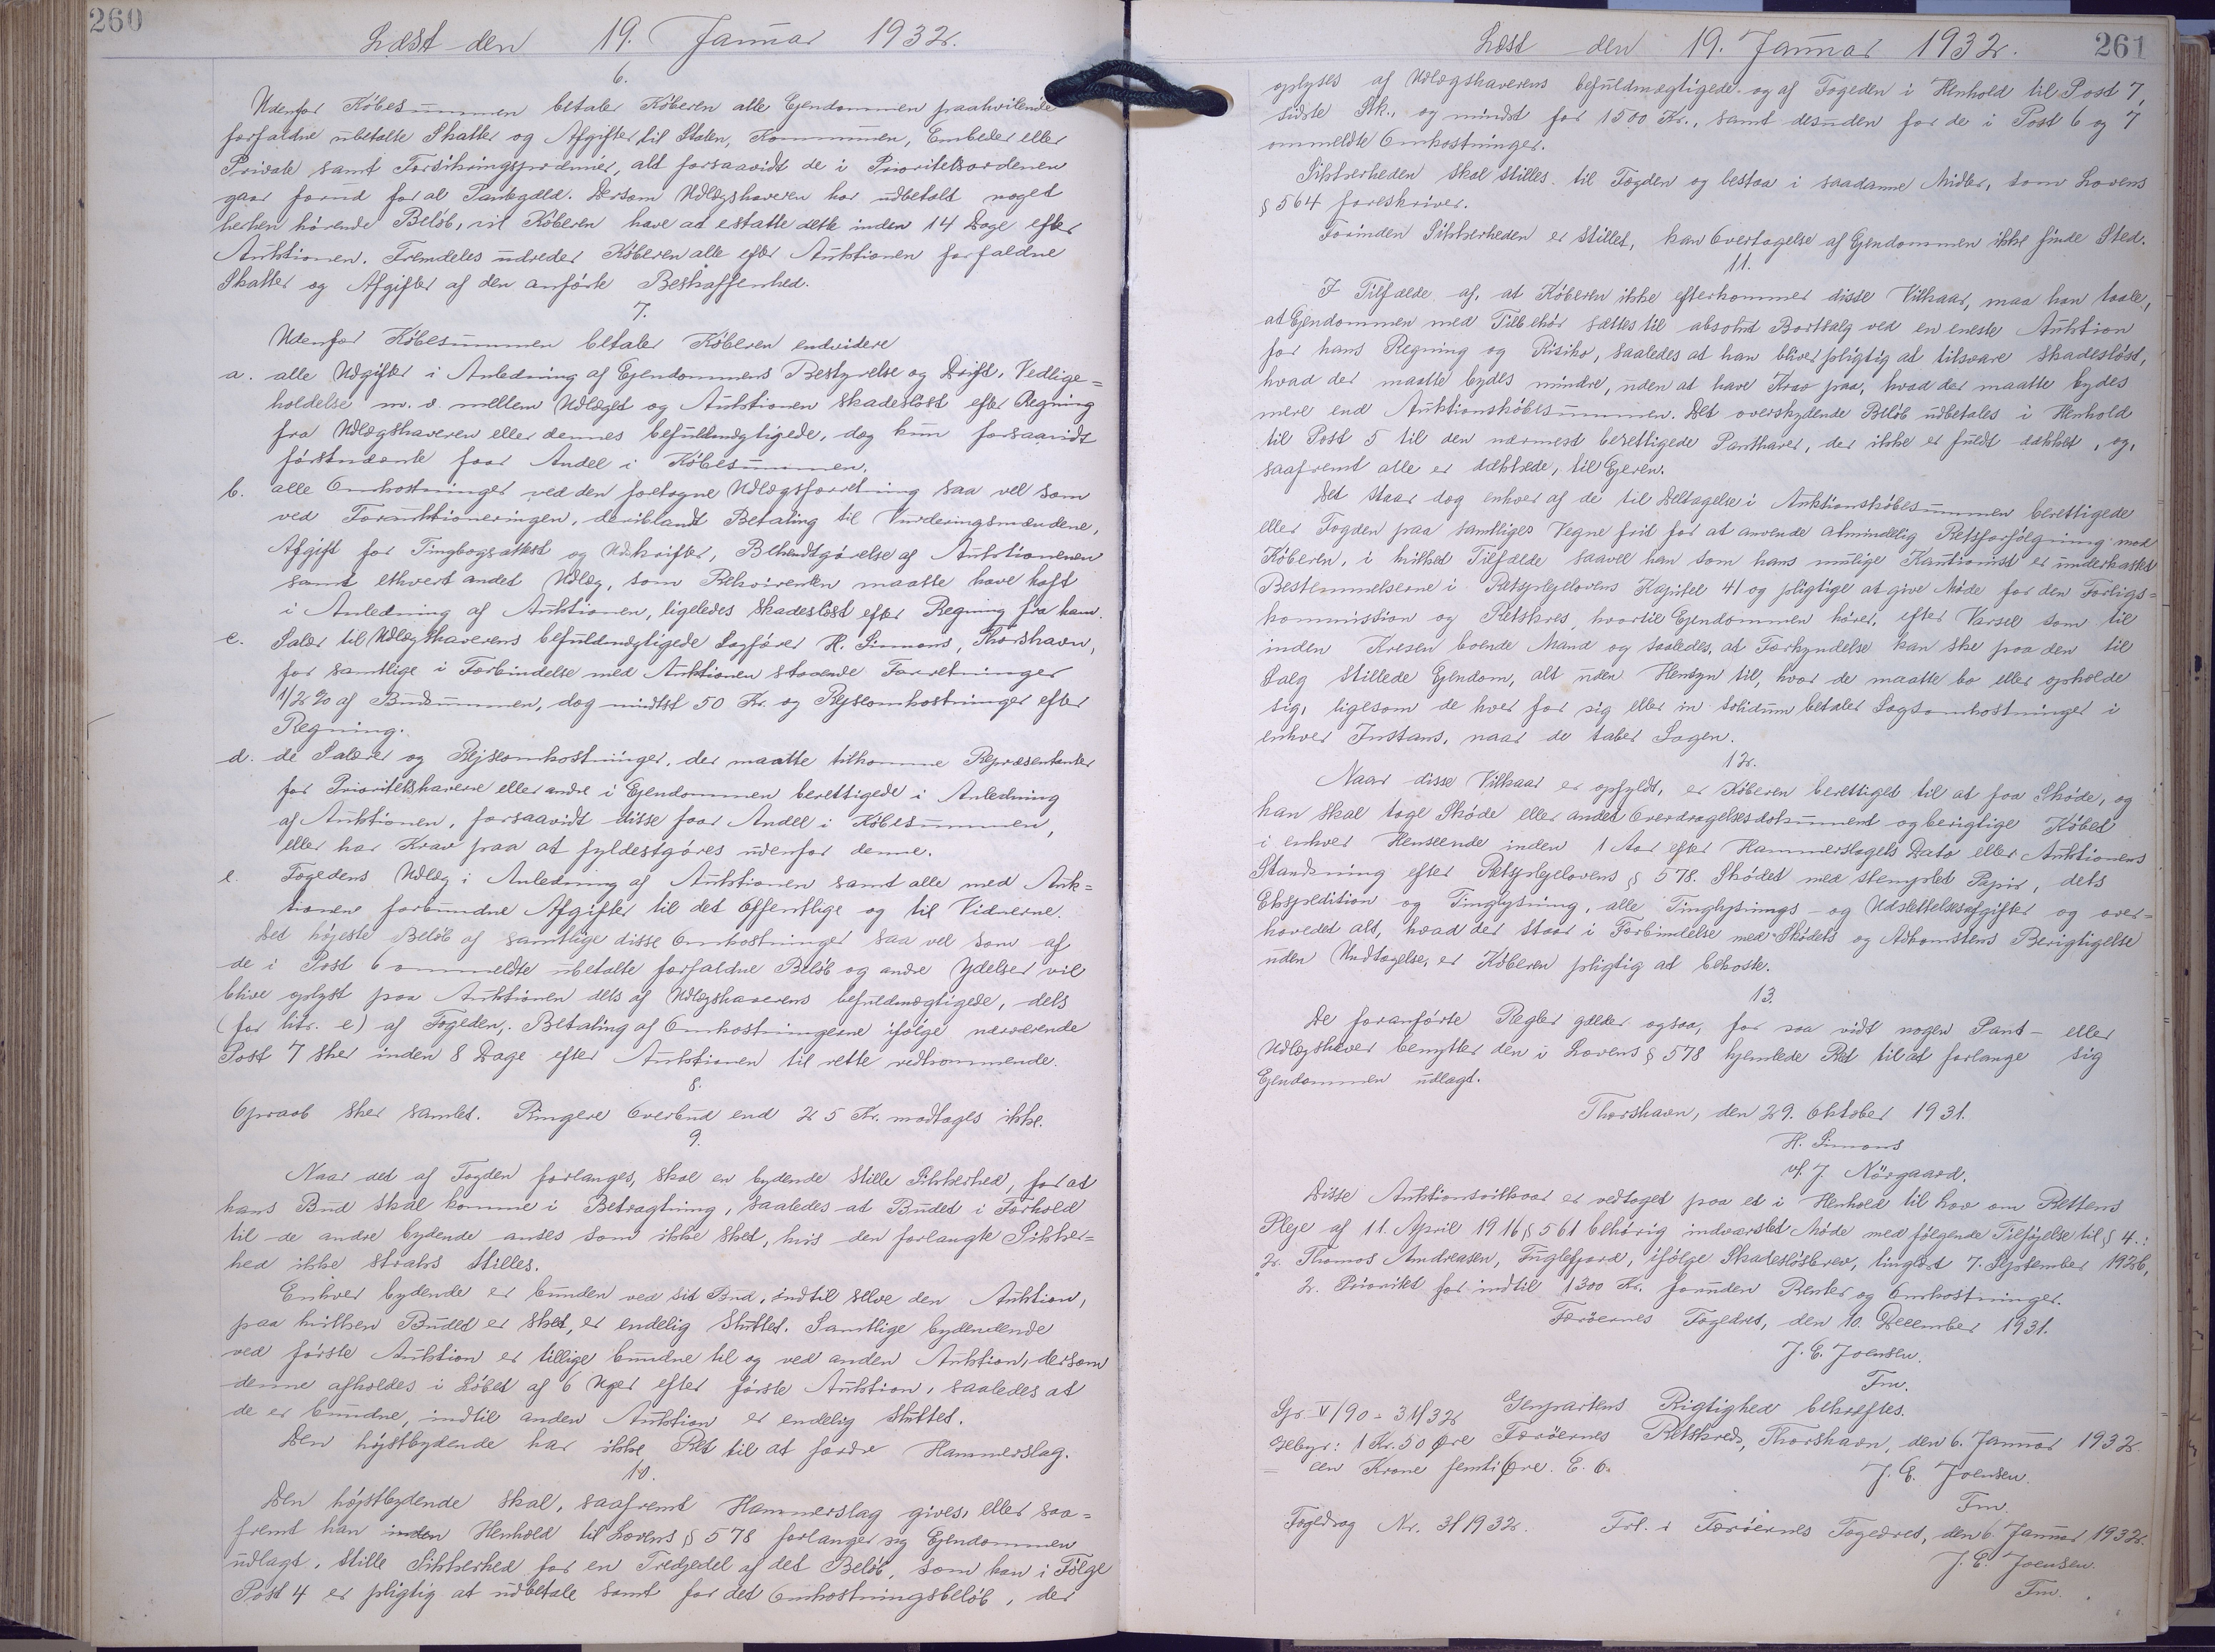 260
Læst den 19. Januar 1932.
6.
Udenfor Købesummen betaler Køberen alle Ejendommen paahvilende
forfaldne ubetalte Skatter og Afgifter til Staten, Kommunen, Embeder eller
Private samt Forsikringspræmier, alt forsaavidt de i Prioritetsordenen
gaar forud for al Pantegæld. Dersom Udlægshaveren har udbetalt noget
herhen hørende Beløb, vil Køberen have at erstatte dette inden 14 Dage efter
Auktionen. Fremdeles udreder Køberen alle efter Auktionen forfaldne
Skatter og Afgifter af den anførte Beskaffenhed.
7.
Udenfor Købesummen betaler Køberen endvidere
a. alle Udgifter i Anledning af Ejendommens Bestyrelse og Drift, Vedlige=
holdelse m. v. mellem Udlæget og Auktionen skadesløst efter Regning
fra Udlægshaveren eller dennes befuldmægtigede, dog kun forsaavidt
førstnævnte faar Andel i Købesummen.
b. alle Omkostninger ved den foretagne Udlægsforretning saa vel som
ved Forauktioneringen, deriblandt Betaling til Vurderingsmændene,
Afgift for Tingbogsattest og Udskrifter, Bekendtgørelse af Auktionenen
samt ethvert andet Udlæg, som Rekvirenten maatte have haft
i Anledning af Auktionen, ligeledes skadesløst efter Regning fra ham.
c. Salær til Udlægshaverens befuldmægtigede Sagfører H. Simons, Thorshavn,
for samtlige i Forbindelse med Auktionen staaende Forretninger
1/2 % af Budsummen, dog mindst 50 Kr. og Rejseomkostninger efter
Regning.
d. de Salærer og Rejseomkostninger, der maatte tilkomme Repræsentanter
for Prioritetshaverne eller andre i Ejendommen berettigede i Anledning
af Auktionen, forsaavidt disse faar Andel i Købesummen,
eller har Krav paa at fyldestgøres udenfor denne.
e. Fogedens Udlæg i Anledning af Auktionen samt alle med Auk=
tionen forbundne Afgifter til det Offentlige og til Vidnerne.
Det højeste Beløb af samtlige disse Omkostninger saa vel som af
de i Post 6 ommeldte ubetalte forfaldne Beløb og andre Ydelser vil
blive oplyst paa Auktionen dels af Udlægshaverens befuldmægtigede, dels
(for litr. e) af Fogeden. Betaling af Omkostningerne ifølge nærværende
Post 7 sker inden 8 Dage efter Auktionen til rette vedkommende.
8.
Opraab sker samlet. Ringere Overbud end 25 Kr. modtages ikke.
9.
Naar det af Fogden forlanges, skal en bydende stille Sikkerhed, for at
hans Bud skal komme i Betragtning, saaledes at Budet i Forhold
til de andre bydende anses som ikke sket, hvis den forlangte Sikker=
hed ikke straks stilles.
Enhver bydende er bunden ved sit Bud, indtil selve den Auktion,
paa hvilken Budet er sket, er endelig sluttet. Samtlige bydendende
ved første Auktion er tillige bundne til og ved anden Auktion, dersom
denne afholdes i Løbet af 6 Uger efter første Auktion, saaledes at
de er bundne, indtil anden Auktion er endelig sluttet.
Den højstbydende har ikke Ret til at fordre Hammerslag.
10.
Den højstbydende skal, saafremt Hammerslag gives, eller saa=
fremt han inden Henhold til Lovens § 578 forlanger sig Ejendommen
udlagt, stille Sikkerhed for en Tredjedel af det Beløb, som han i Følge
Post 4 er pligtig at udbetale samt for det Omkostningsbeløb, der
Læst den 19. Januar 1932.
261
oplyses af Udlægshaverens befuldmægtigede og af Fogeden i Henhold til Post 7,
sidste Stk., og mindst for 1500 Kr., samt desuden for de i Post 6 og 7
ommeldte Omkostninger.
Sikkerheden skal stilles til Fogden og bestaa i saadanne Midler, som Lovens
§ 564 foreskriver.
Forinden Sikkerheden er stillet, kan Overtagelse af Ejendommen ikke finde Sted.
11.
I Tilfælde af, at Køberen ikke efterkommer disse Vilkaar, maa han taale,
at Ejendommen med Tilbehør sættes til absolut Bortsalg ved en eneste Auktion
for hans Regning og Risiko, saaledes at han bliver pligtig at tilsvare skadesløst,
hvad der maatte bydes mindre, uden at have Krav paa, hvad der maatte bydes
mere end Auktionskøbesummen. Det overskydende Beløb udbetales i Henhold
til Post 5 til den nærmest berettigede Panthaver, der ikke er fuldt dækket, og,
saafremt alle er dækkede, til Ejeren.
Det staar dog enhver af de til Deltagelse i Auktionskøbesummen berettigede
eller Fogden paa samtliges Vegne frit for at anvende almindelig Retsforfølgning mod
Køberen, i hvilket Tilfælde saavel han som hans mulige Kautionist er underkastet
Bestemmelserne i Retsplejelovens Kapitel 41 og pligtige at give Møde for den Forligs=
kommission og Retskres, hvortil Ejendommen hører, efter Varsel som til
inden Kresen boende Mand og saaledes, at Forkyndelse kan ske paa den til
Salg stillede Ejendom, alt uden Hensyn til, hvor de maatte bo eller opholde
sig, ligesom de hver for sig eller in solidum betaler Sagsomkostninger i
enhver Instans, naar de taber Sagen.
12.
Naar disse Vilkaar er opfyldt, er Køberen berettiget til at faa Skøde, og
han skal tage Skøde eller andet Overdragelsesdokument og berigtige Købet
i enhver Henseende inden 1 Aar efter Hammerslagets Dato eller Auktionens
Standsning efter Retsplejelovens § 578. Skødet med stemplet Papir, dets
Ekspedition og Tinglysning, alle Tinglysnings- og Udslettelsesafgifter og over=
hovedet alt, hvad der staar i Forbindelse med Skødets og Adkomstens Berigtigelse
uden Undtagelse, er Køberen pligtig at bekoste.
13.
De foranførte Regler gælder ogsaa, for saa vidt nogen Pant- eller
Udlægshaver benytter den i Lovens § 578 hjemlede Ret til at forlange sig
Ejendommen udlagt.
Thorshavn, den 29. Oktober 1931.
H. Simons
vf. J. Nörgaard.
Disse Auktionsvilkaar er vedtaget paa et i Henhold til Lov om Rettens
Pleje af 11. April 1916 § 561 behørig indvarslet Møde med følgende Tilføjelse til § 4.:
"2. Thomas Andreasen, Fuglefjord, ifølge Skadesløsbrev, tinglæst 7. September 1926,
2. Prioritet for indtil 1300 Kr. foruden Renter og Omkostninger.
Færøernes Fogedret, den 10. December 1931.
J. E. Joensen.
Fm.
Genpartens Rigtighed bekræftes.
Gr. V/90 - 31/32
Gebyr: 1 Kr. 50 Øre Færøernes Retskreds, Thorshavn, den 6. Januar 1932.
= een Krone femti Øre. E. O.
J. E. Joensen.
Fm.
Fogedsag Nr. 3/1932. Frl. i Færøernes Fogedret, den 6. Januar 1932.
J. E. Joensen.
Fm.